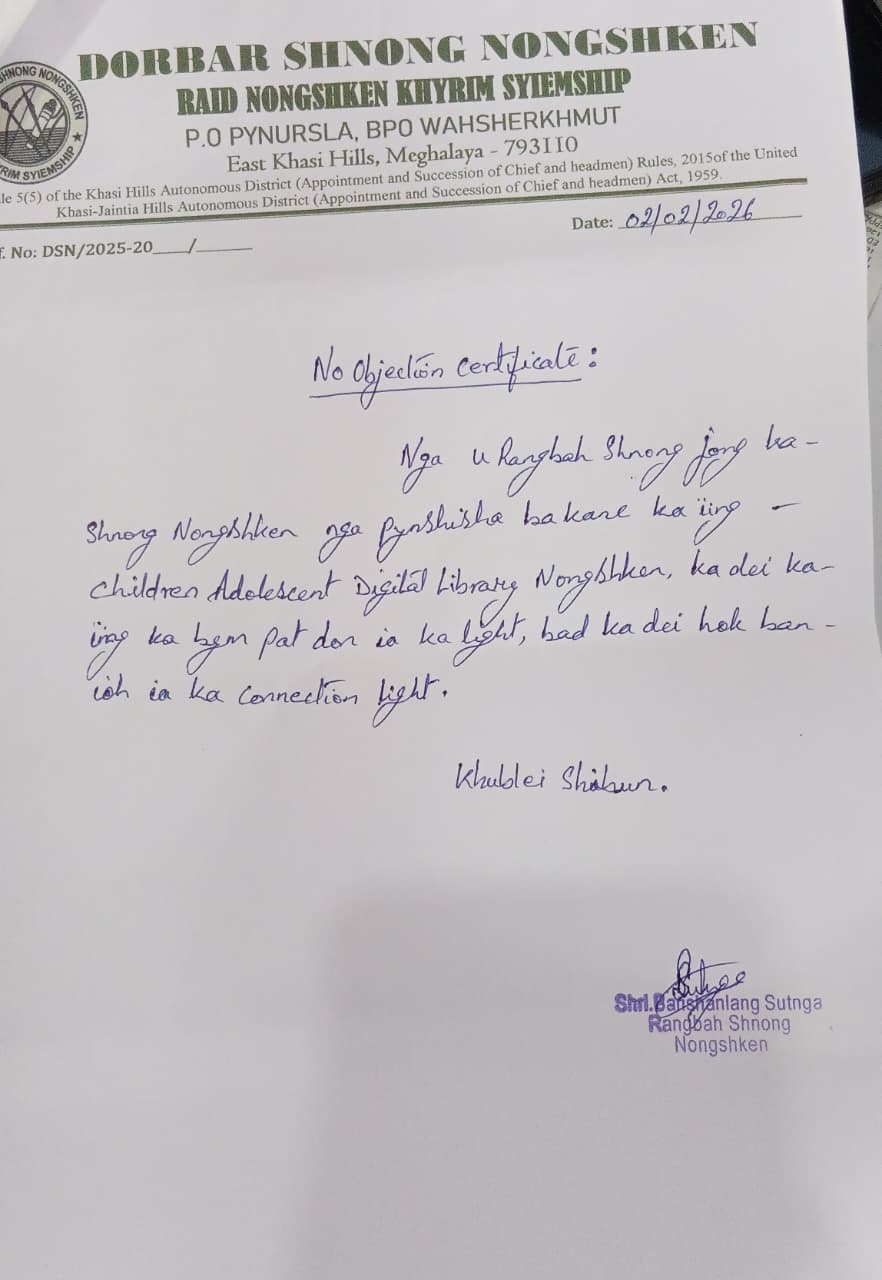 DORBAR SHNONG NONGSHKEN
RAID NONGSHKEN KHYRIM SYIEMSHIP
P.O PYNURSLA, BPO WAHSHERKHMUT
East Khasi Hills, Meghalaya - 793110
le 5(5) of the Khasi Hills Autonomous District (Appointment and Succession of Chief and headmen) Rules, 2015of the United
Khasi-Jaintia Hills Autonomous District (Appointment and Succession of Chief and headmen) Act, 1959.
SHNONG NONGSHKEN ★
RIM SYIEMSHIP
Date: 02/02/2026
f. No: DSN/2025-20___/_____
No Objection Certificate:
Nga u Rangbah Shnong jong ka-
Shnong Nongshken nga pynshisha ba kane ka ïing -
Children Adolescent Digital Library Nongshken, ka dei ka-
ïing ka bym pat don ia ka light, bad ka dei hok ban -
ïoh ia ka connection light.
Khublei Shibun.
Shri.Banshanlang Sutnga
Rangbah Shnong
Nongshken